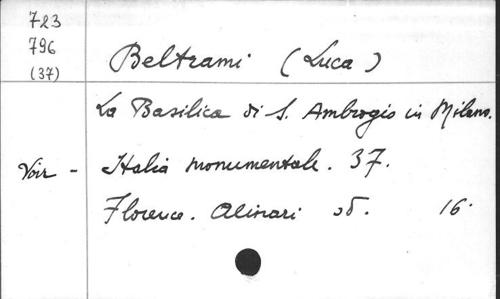 723
796
(37)
Beltrami (Luca)
La Basilica di S. Ambrogio in Milano.
Voir - Italia monumentale. 37.
Florence. Alinari sd. 16.